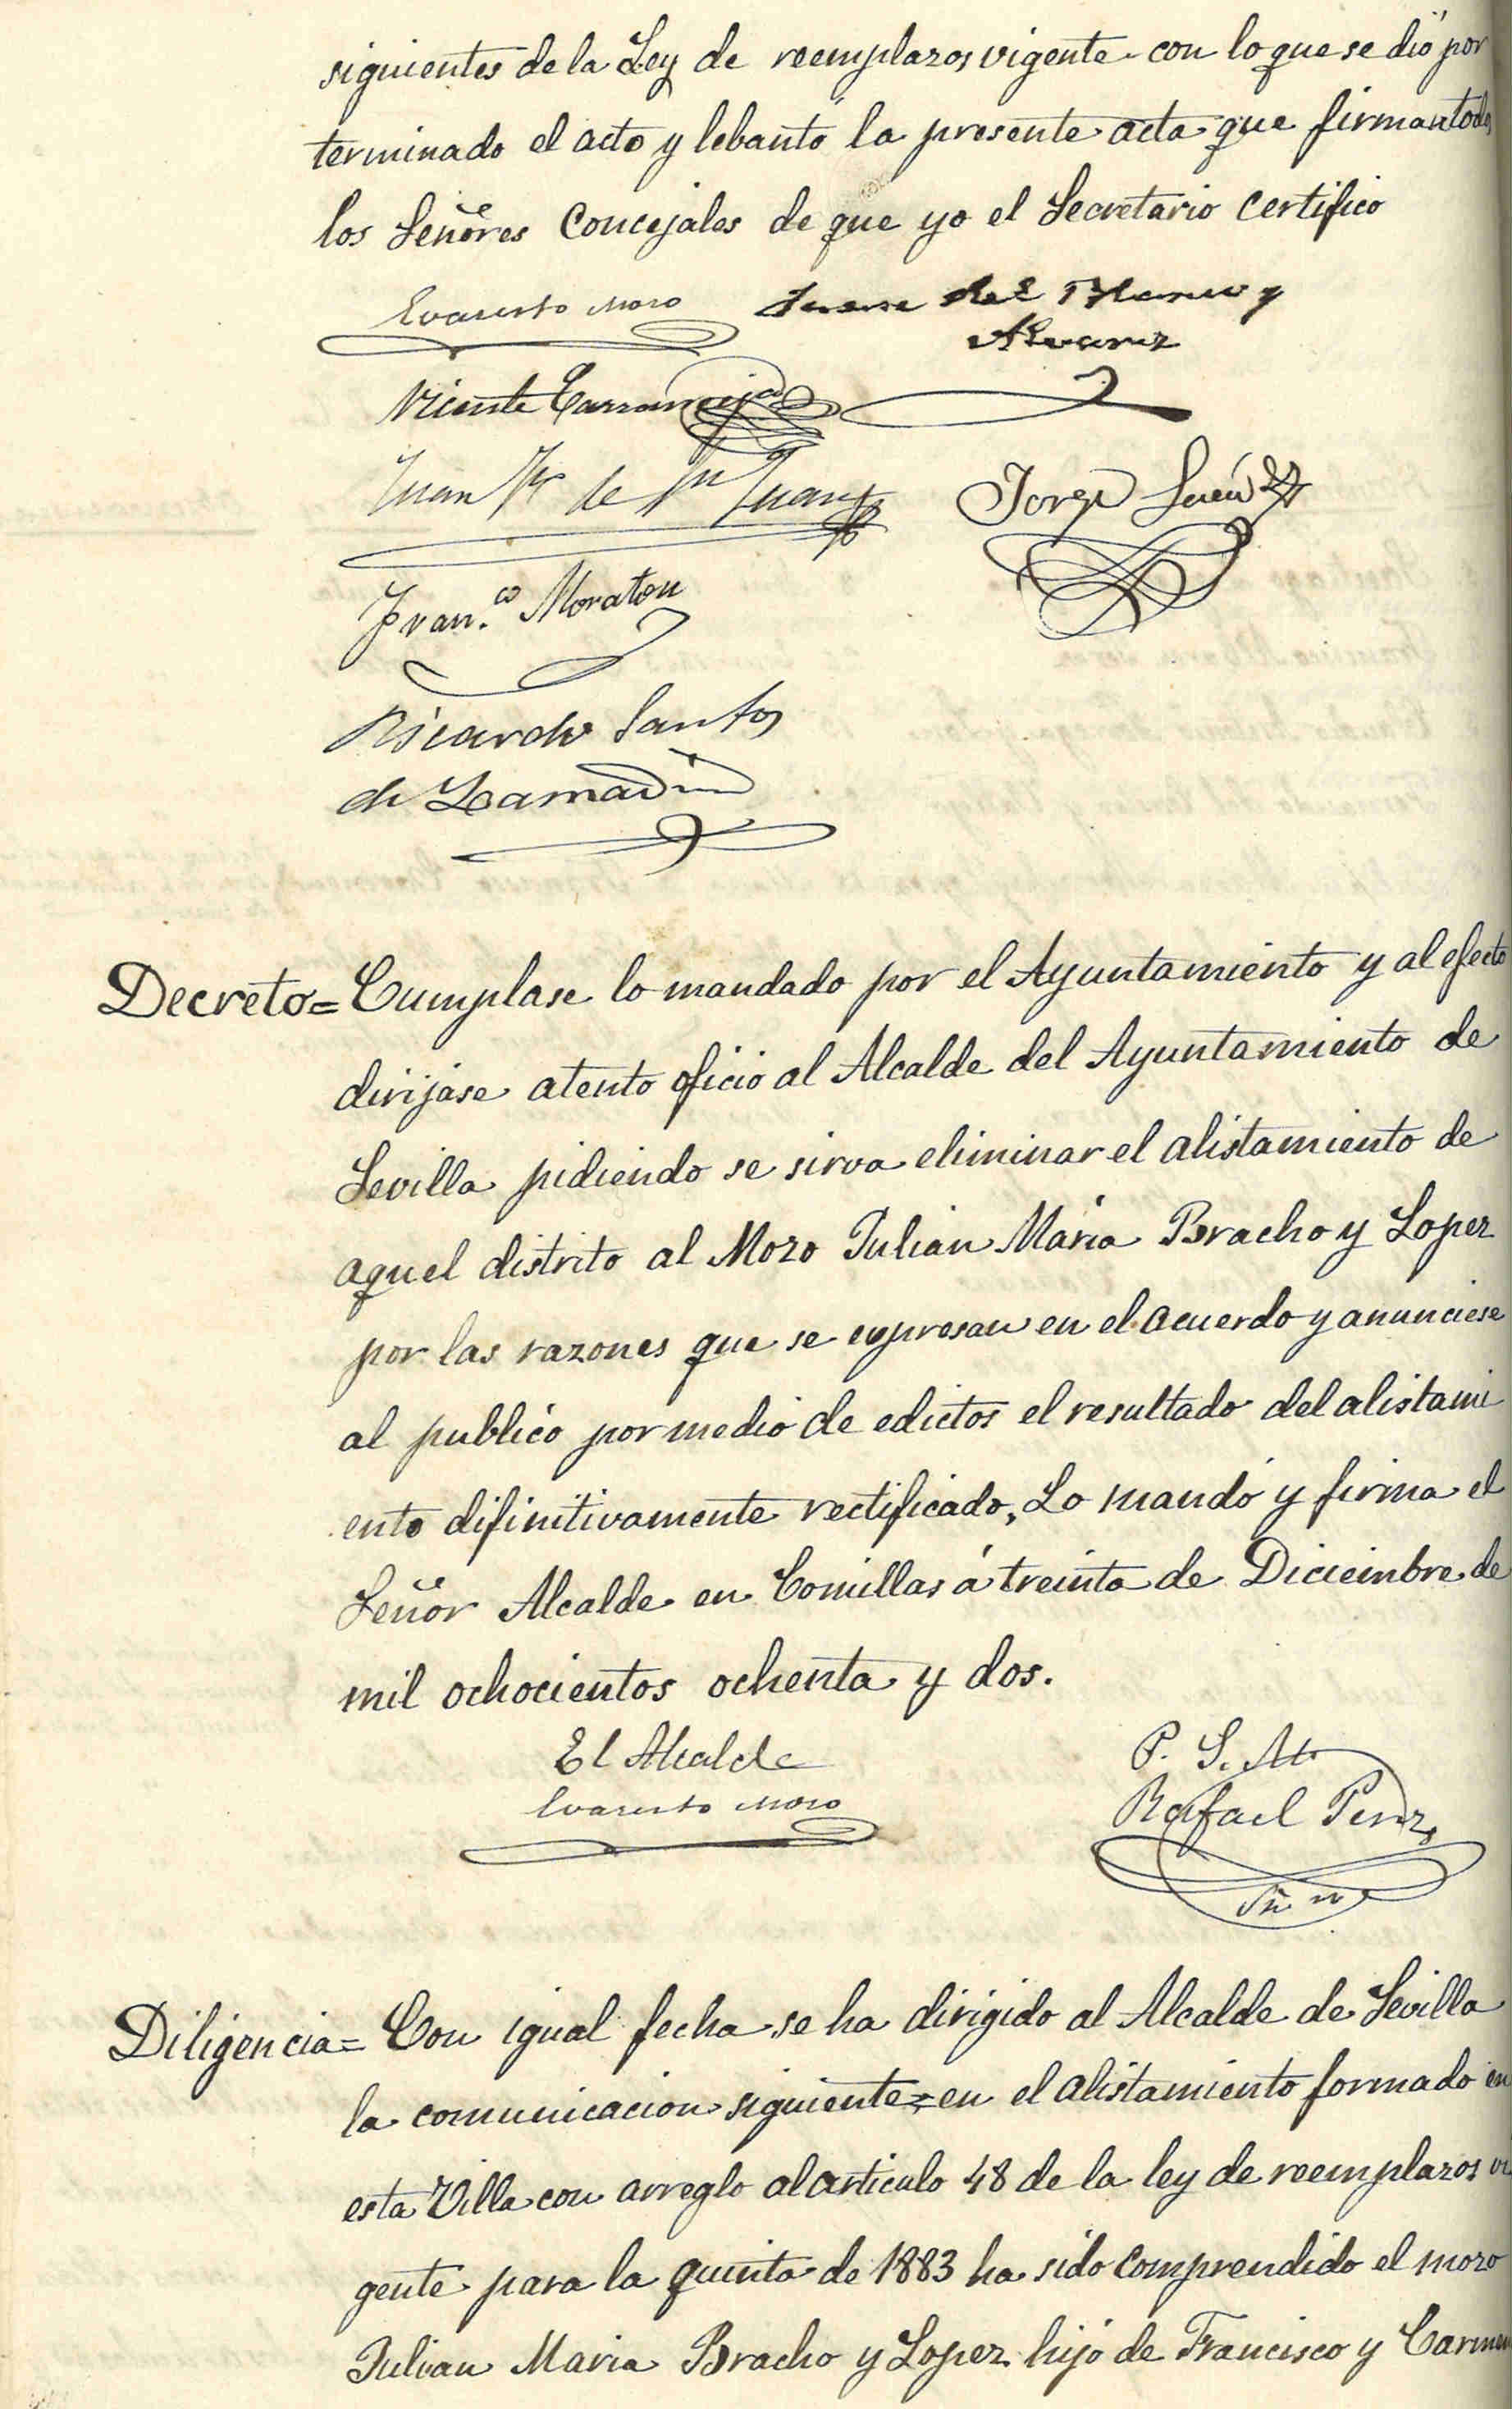 siguientes de la Ley de reemplazos vigente con lo que se dió por
terminado el acto y lebantó la presente acta que firman todos
los Señores Concejales de que yo el Secretario certifico
Evaristo Moro
Juan del Blanco y
Alvarez
Vicente Carranceja
Juan Fz de Sn Juan
Jorge
Fran.co Moraton
Ricardo Santos
de Lamadrid
Decreto= Cumplase lo mandado por el Ayuntamiento y al efecto
dirijase atento oficio al Alcalde del Ayuntamiento de
Sevilla pidiendo se sirva eliminar el alistamiento de
aquel distrito al Mozo Julian Maria Bracho y Lopez
por las razones que se expresan en el acuerdo y anunciese
al publico por medio de edictos el resultado del alistami
ento difinitivamente rectificado, Lo mandó y firma el
Señor Alcalde en Comillas á treinta de Diciembre de
mil ochocientos ochenta y dos.
El Alcalde
Evaristo Moro
P. S. M.
Rafael Perez
Diligencia= Con igual fecha se ha dirigido al Alcalde de Sevilla
la comunicacion siguiente= en el alistamiento formado en
esta Villa con arreglo al articulo 48 de la ley de reemplazos vi
gente para la quinta de 1883 ha sido comprendido el mozo
Julian Maria Bracho y Lopez hijo de Francisco y Carmen